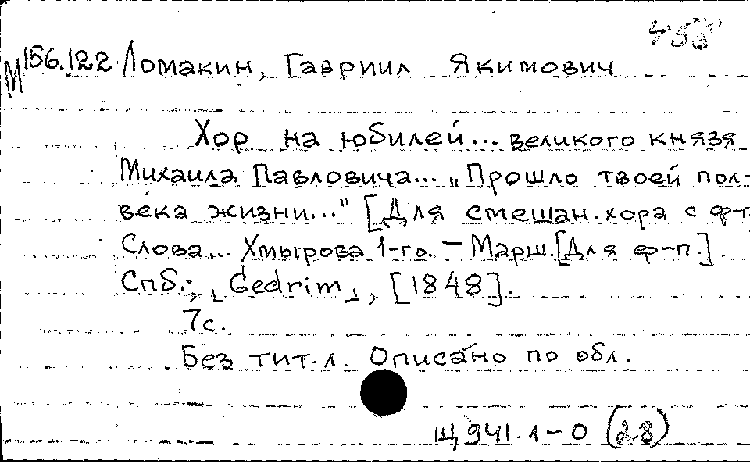 М156.122 Ломакин, Гавриил Якимович
Хор на юбилей... великого князя
Михаила Павловича... „Прошло твоей пол-
века жизни..." [Для смешан.хора с ф-п
Слова... Хмырова 1-го. – Марш.[Для ф-п.]
Спб., „Gedrim", [1848].
7с.
Без тит.л. Описано по обл.
Щ941.1-0 (28)